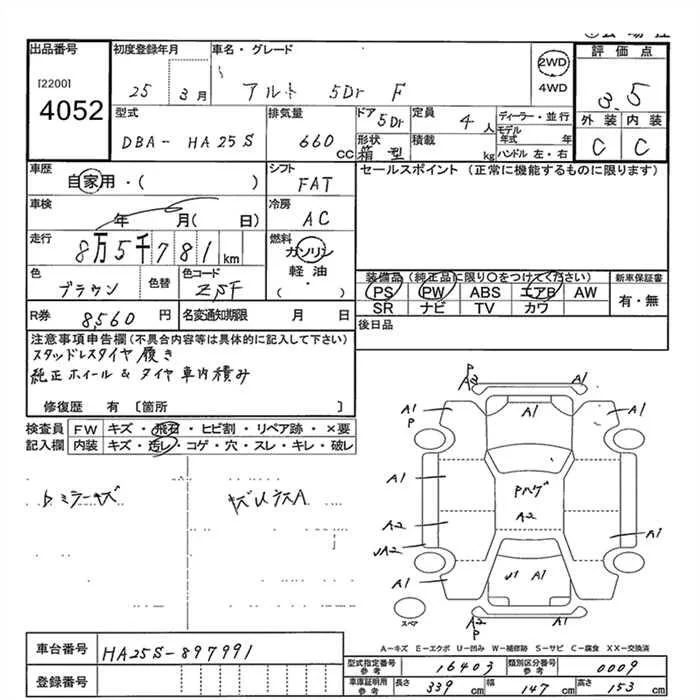 出品番号 初度登録年月 車名・グレード 2WD 評価点
[2200] 4052 25 3月 アルト 5Dr F 4WD 3.5
型式 排気量 ドア 5Dr 定員 4人 ディーラー・並行 外装 内装
DBA- HA25S 660cc 形状 箱型 積載 kg モデル年式 年 ハンドル 左・右 C C
車歴 自家用・( ) シフト FAT セールスポイント (正常に機能するものに限ります)
車検 年 月( 日) 冷房 AC
走行 8万5千781km 燃料 ガソリン
軽油・( )
色 ブラウン 色替 色コード ZSF 装備品 (純正品に限り○をつけてください) 新車保証書
PS PW ABS エアB AW 有・無
SR ナビ TV カワ
R券 8,560円 名変通知期限 月 日 後日品
注意事項申告欄(不具合内容等は具体的に記入して下さい)
スタッドレスタイヤ履き
純正ホイール&タイヤ車内積み
修復歴 有 〔箇所 〕
検査員 FW キズ・飛石・ヒビ割・リペア跡・×要
記入欄 内装 キズ・汚レ・コゲ・穴・スレ・キレ・破レ
ミラーキズ
P A2 A1
A1 P A1 A1
A1 Pハゲ A1
A2 A2 A1
A2
A1 A1
スペア A2 P A1
A-キズ E-エクボ U-凹み W-補修跡 S-サビ C-腐食 XX-交換済
車台番号 HA25S-897991
型式指定番号 参考 16403 類別区分番号 参考 0009
登録番号 車庫証明用 参考 長さ 339cm 幅 147cm 高さ 153cm